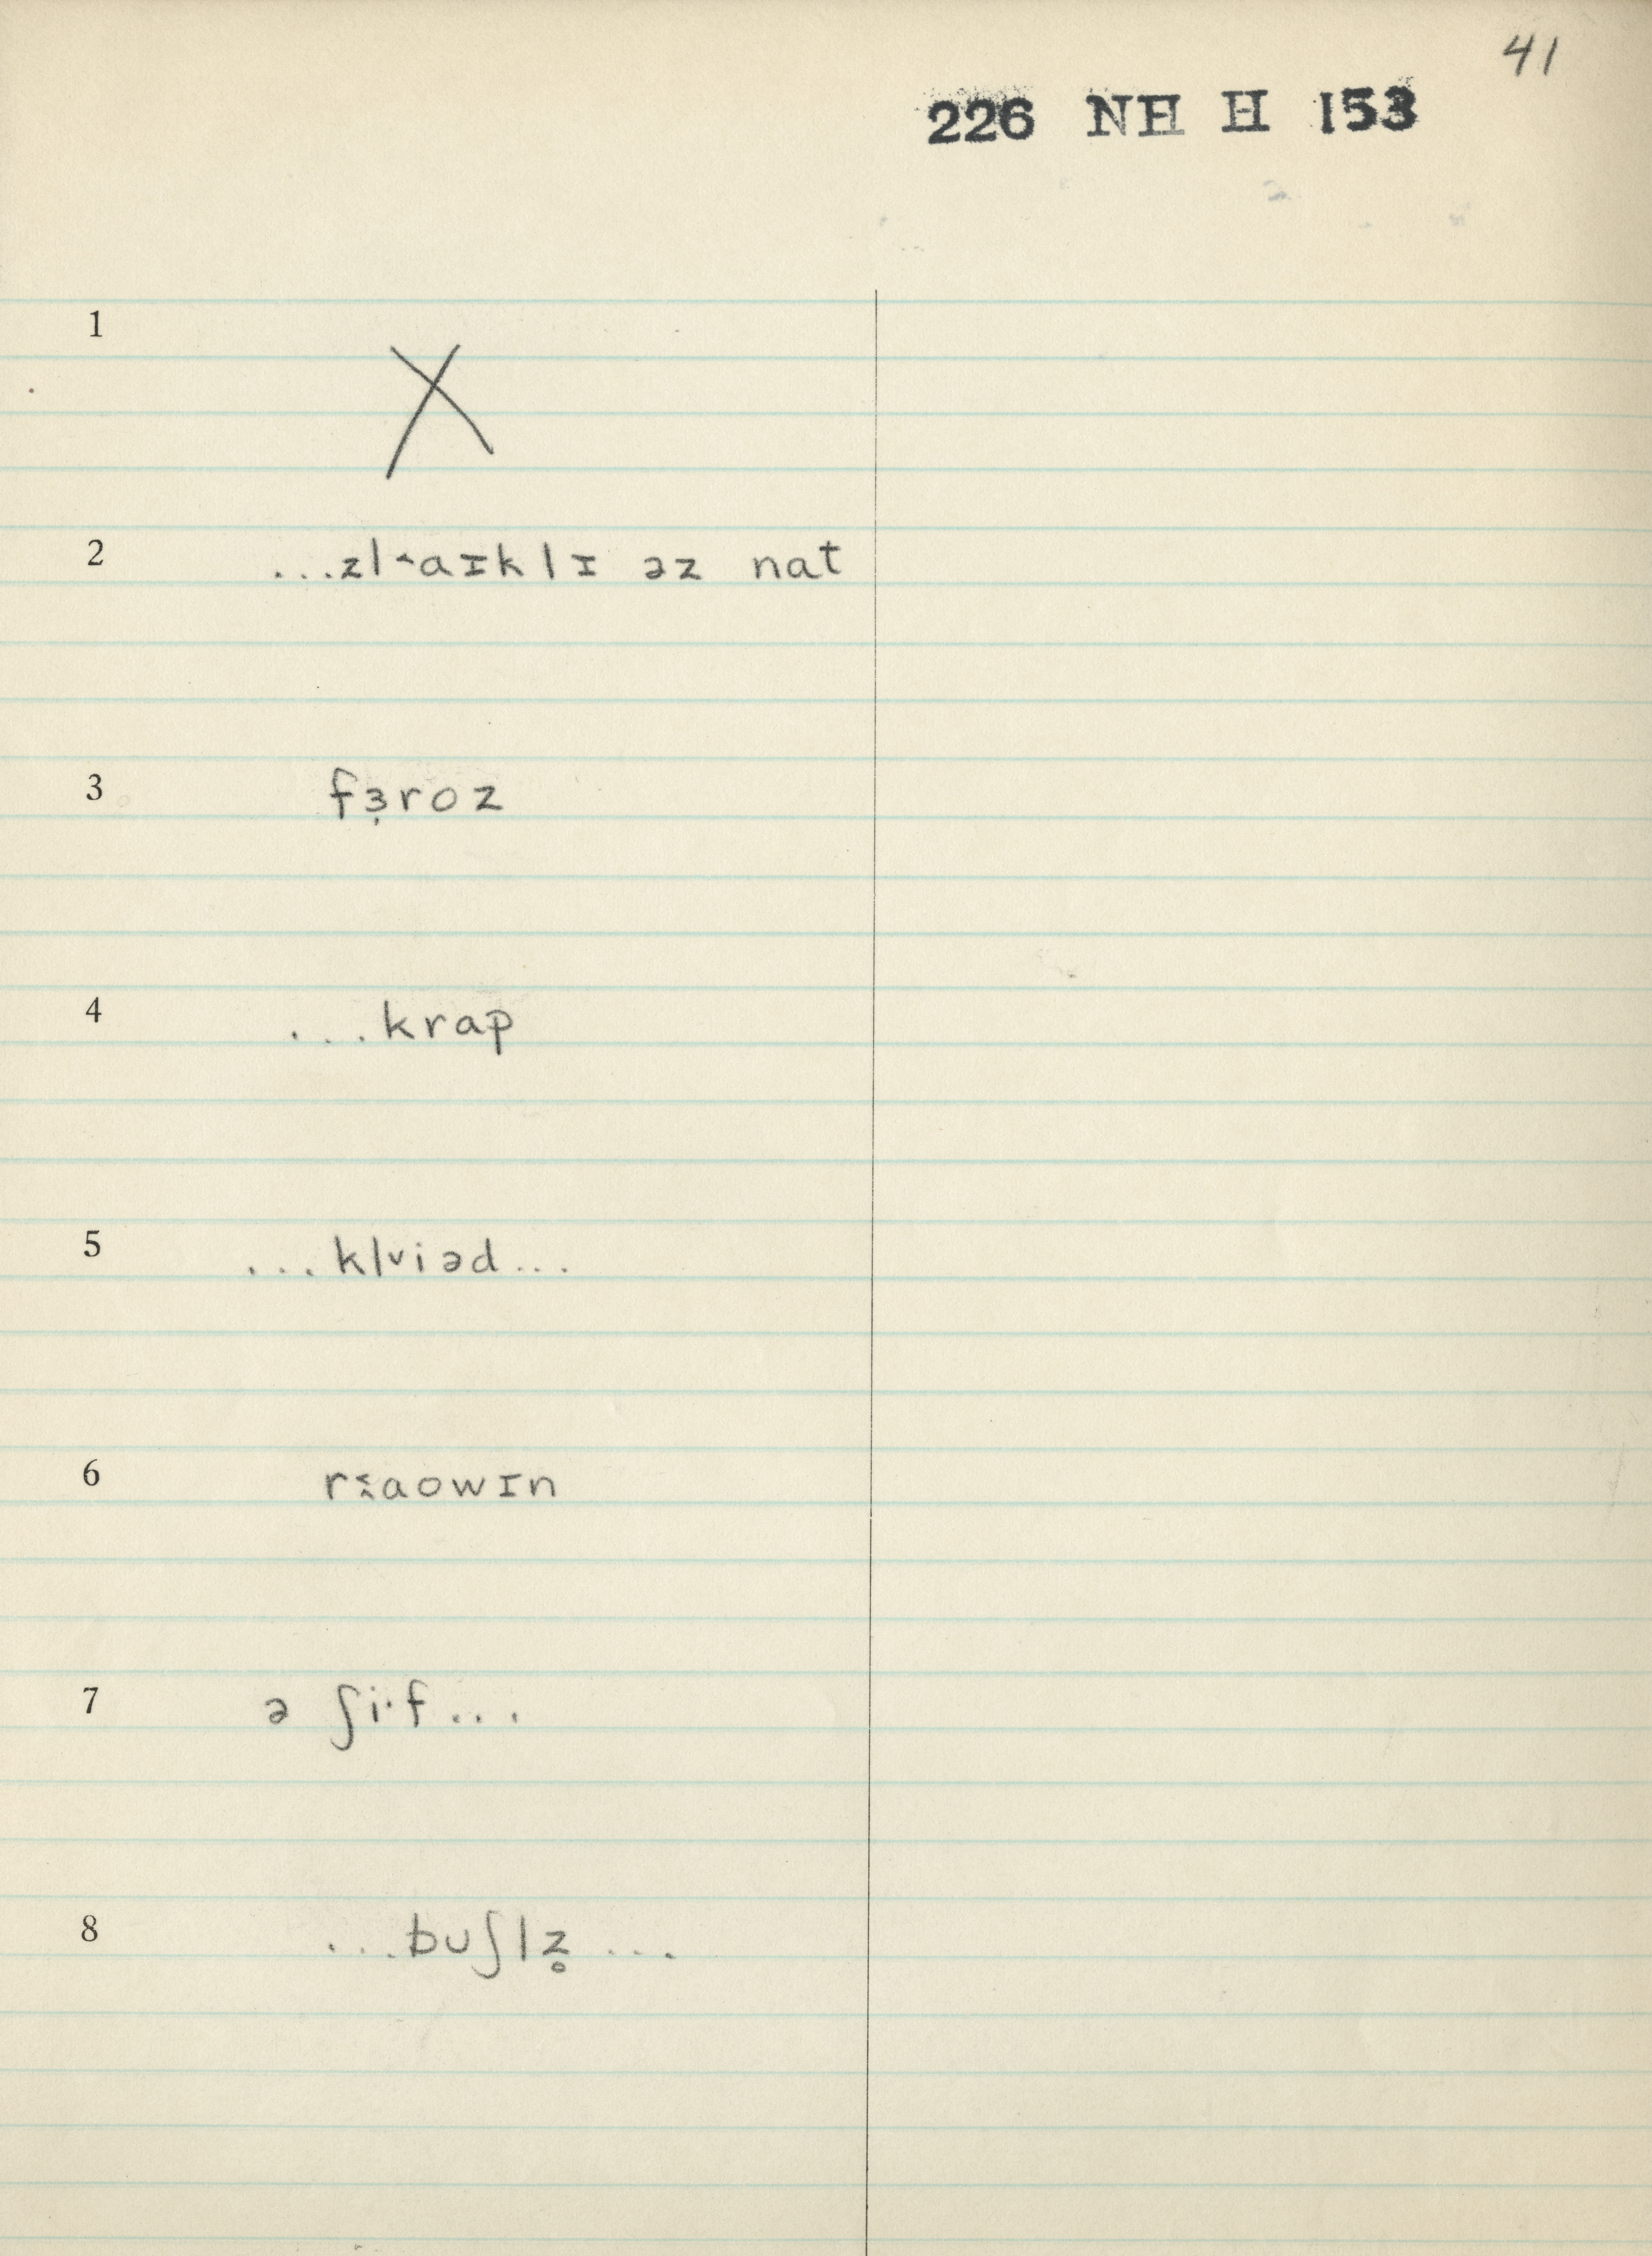 41
226 NH H 153
1
X
2 ...zl˄aɪklɪ əz nat
3 fɜ̣roz
4 ...krap
5 ...kl˅iəd...
6 r˂̭aowɪn
7 ə ʃi·f...
8 ...buʃlz̥ ...